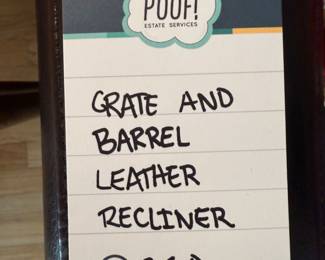 POOF!
ESTATE SERVICES
GRATE AND
BARREL
LEATHER
RECLINER